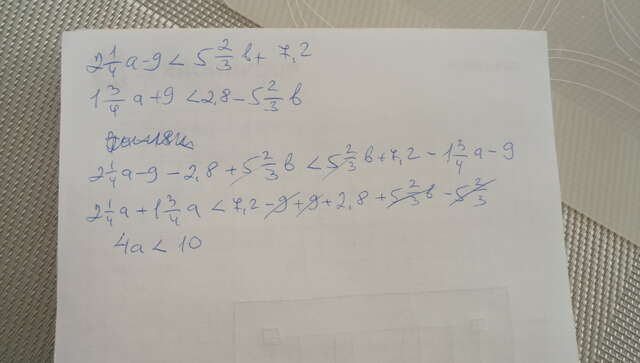 2 1/4 a - 9 < 5 2/3 b + 7,2
1 3/4 a + 9 < 2,8 - 5 2/3 b
2 1/4 a - 9 - 2,8 + 5 2/3 b < 5 2/3 b + 7,2 - 1 3/4 a - 9
2 1/4 a + 1 3/4 a < 7,2 - 9 + 9 + 2,8 + 5 2/3 b - 5 2/3
4a < 10